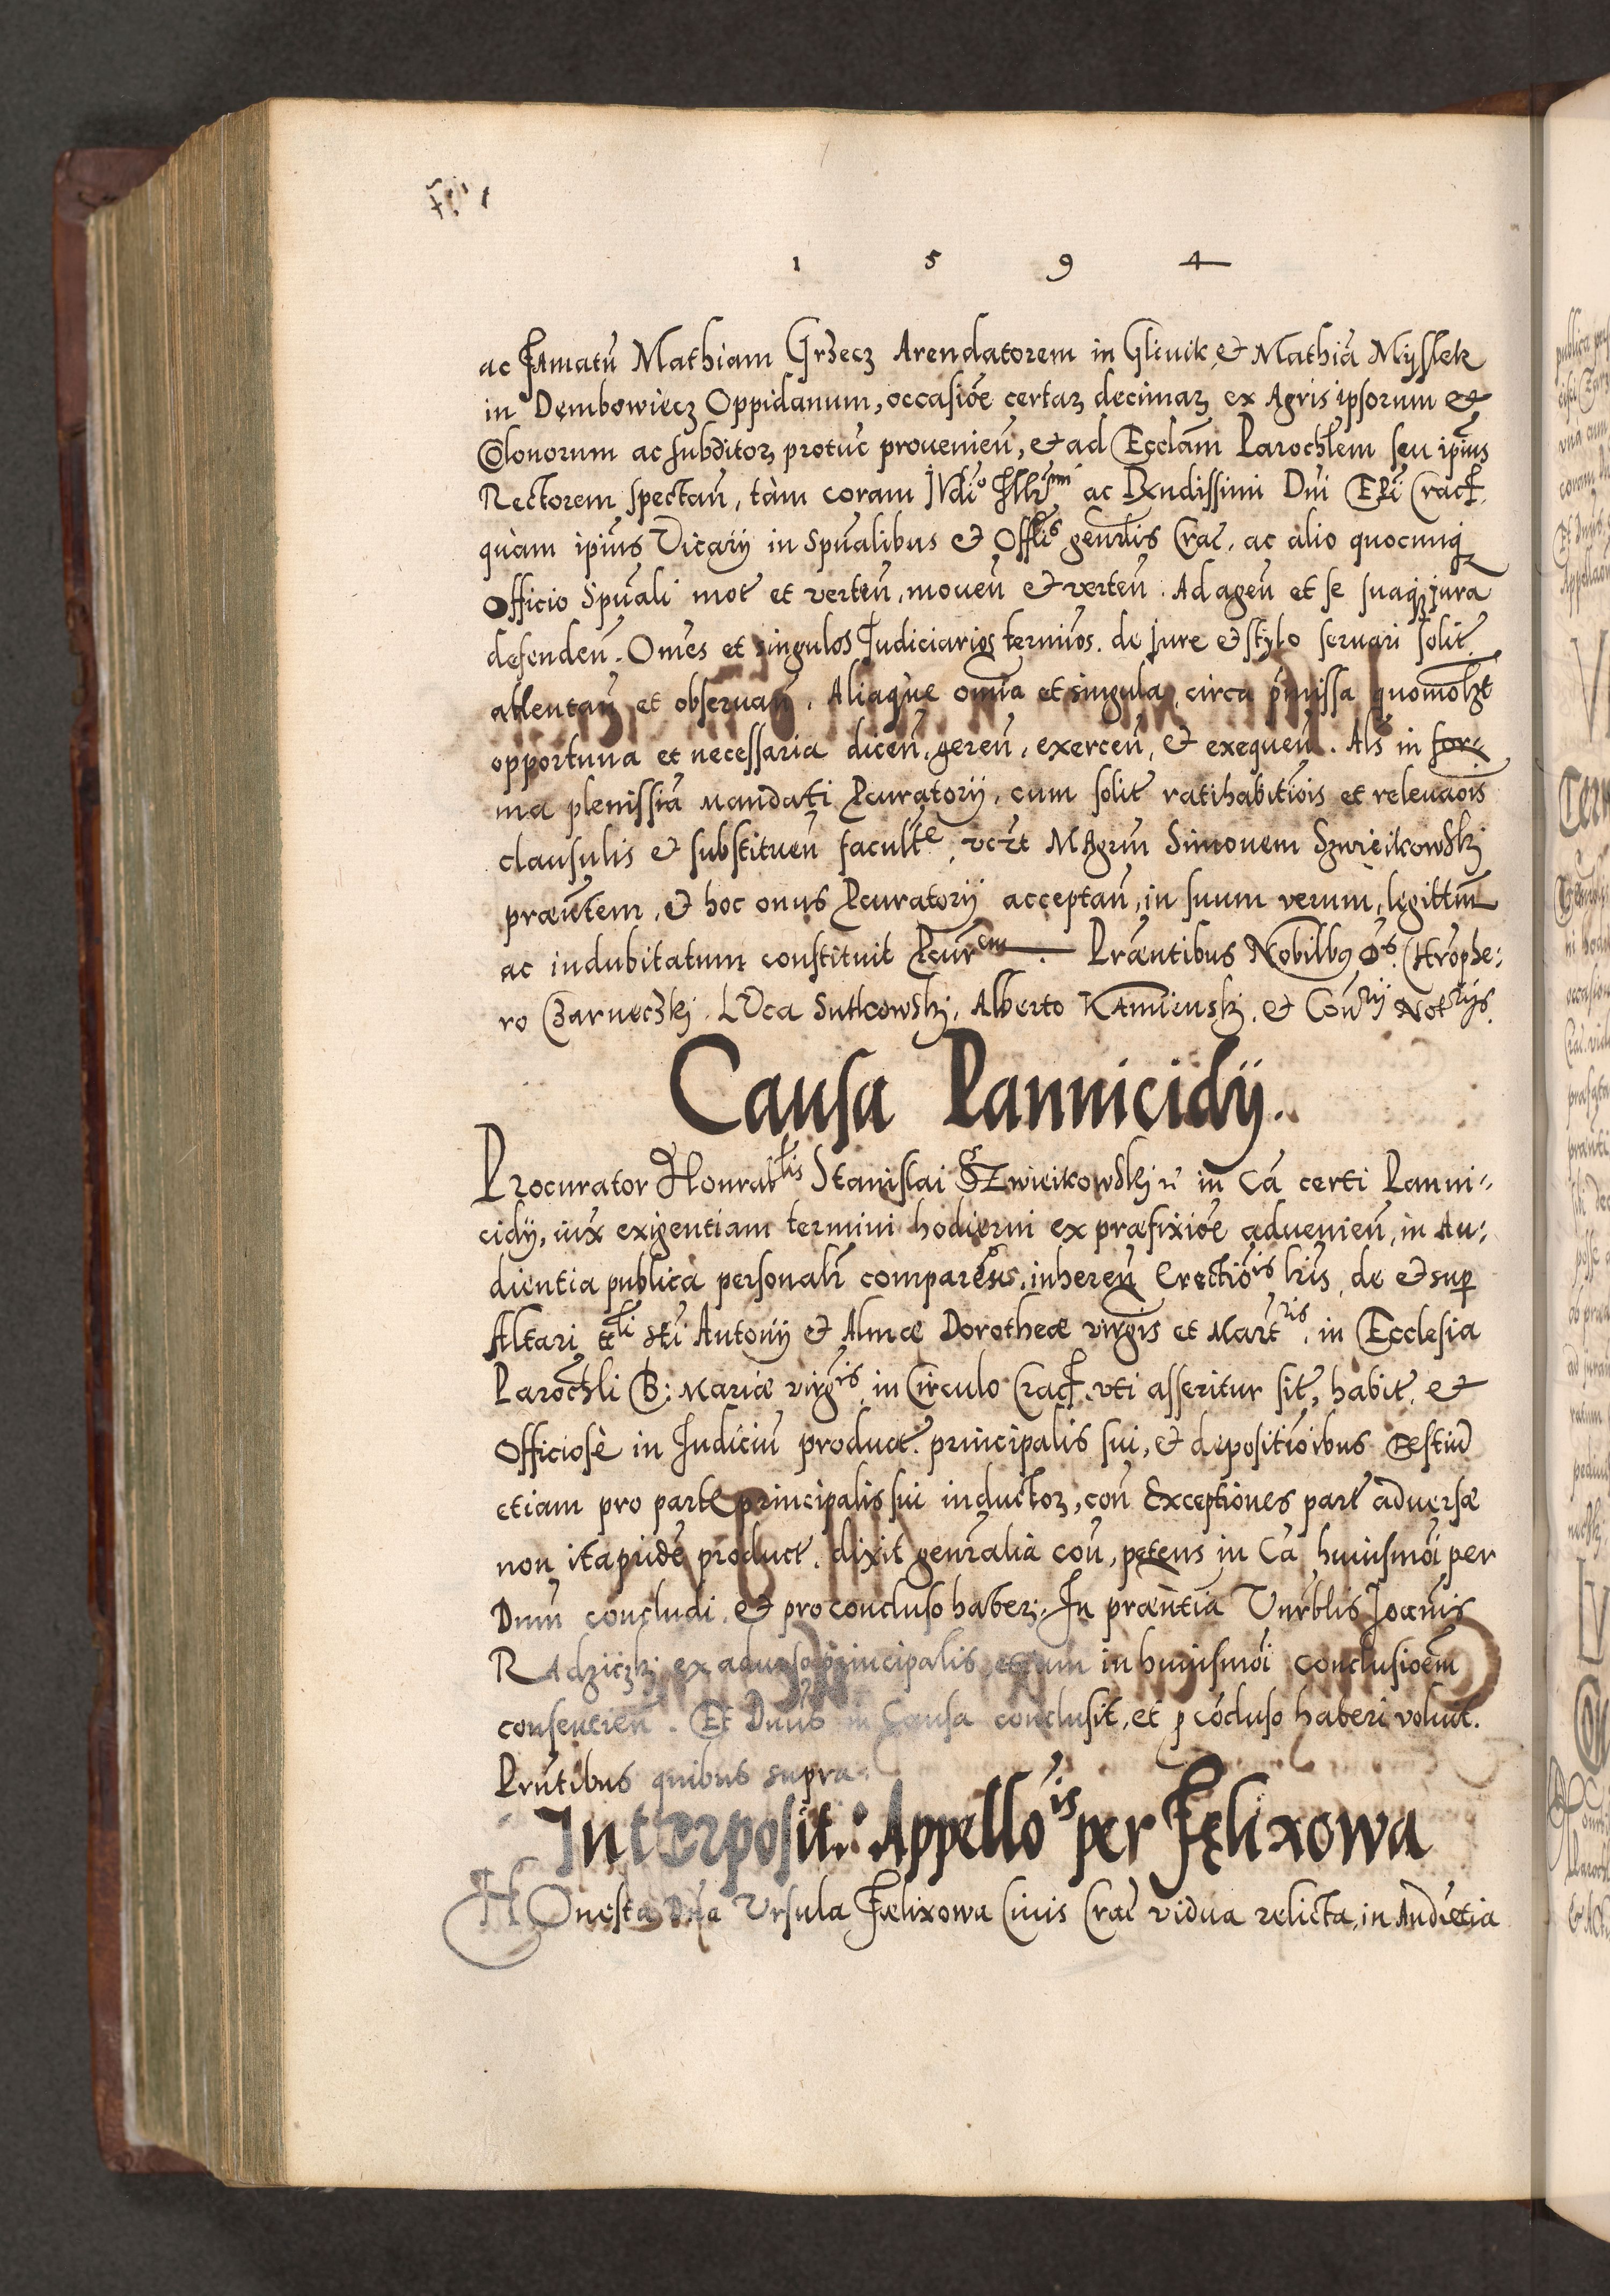 1 5 9 4
ac Famatū Mathiam Grzecz Arendatorem in Glinik, et Mathiā Myslek
in Dembowiecz Oppidanum, occasiōe certaꝝ decimaꝝ ex Agris ipsorum et
Colonorum ac subditoꝝ protūc provenieñ, et ad Ecclām Parochlem seu ipīus
Rectorem spectañ, tàm coram ac Rxndissimi Dñi Epī Cracꝭ.
quàm ipīus Vicarij in Spūalibus et Offlis genrlis Crac̄. ac alio quocunqꝫ
Officio Spūali mot̄ et verteñ, moveñ et verteñ. Ad ageñ et se suaqꝫ jura
defendeñ. Omēs et singulos Judiciarios terminos. de Jure et stylo servari solit̄.
attentañ et observañ. Aliaque omīa et singula, circa p̄missa quomolꝫt
opportuna et necessaria diceñ, gereñ, exerceñ, et exequeñ. Als̄ in for-
ma plenissīa Mandati Pcuratorij, cum solit̄ ratihabitiōis et relevaōis
clausulis et substitueñ facultᵉ, vꝫt MAgrum Simonem Szwieikowskj
præntem, et hoc onus Pcuratorij acceptañ, in suum verum, legittim̄
ac indubitatum constituit Pcurᵉᵐ. Præntibus Nobilbꝫ Chrophe-
ro Czarneczkj. LUca Sutkowskj, Alberto KAmienskj, et Coñrij Notrijs.
Causa Pannicidij.
Procurator Honrabˡⁱˢ Stanislai SZwieikowskj in Cā certi Panni-
cidij, iux exigentiam termini hodierni ex præfixiōe advenieñ, in Au-
dientia publica personalr̄ comparēns, inhereñ Erectiōⁱˢ lris, de et sup̱
Altari ttˡⁱ Sti Antonij et Almæ Dorotheæ virgīs et Martʳⁱˢ. in Ecclesia
Parochli B: Mariæ virgⁱˢ, in Circulo Cracꝭ. uti asseritur sit̄, habit̄. et
Officiosè in Judiciū product̄. principalis sui, et depositiōibus Testiū
etiam pro parte principalis sui inductoꝝ, coñ Exceptiones part̄ adversæ
non itapridē product̄. dixit genralia coñ, petens in Cā huiusmōi per
Dnum concludi. et pro concluso haberj. In præntia Vnrblis Joannis
RAdziczkj ex adverso principalis, etiam in huiusmōi conclusiōem
consentieñ. Et Dnūs in Causa conclusit, et p cōcluso haberi voluit.
Prntibus quibus supra.
Interposit: Appellōⁱˢ per Fęlixowa
HOnesta Dnā Ursula Fælixowa Civis Crac̄ vidua relicta, in Audiētia